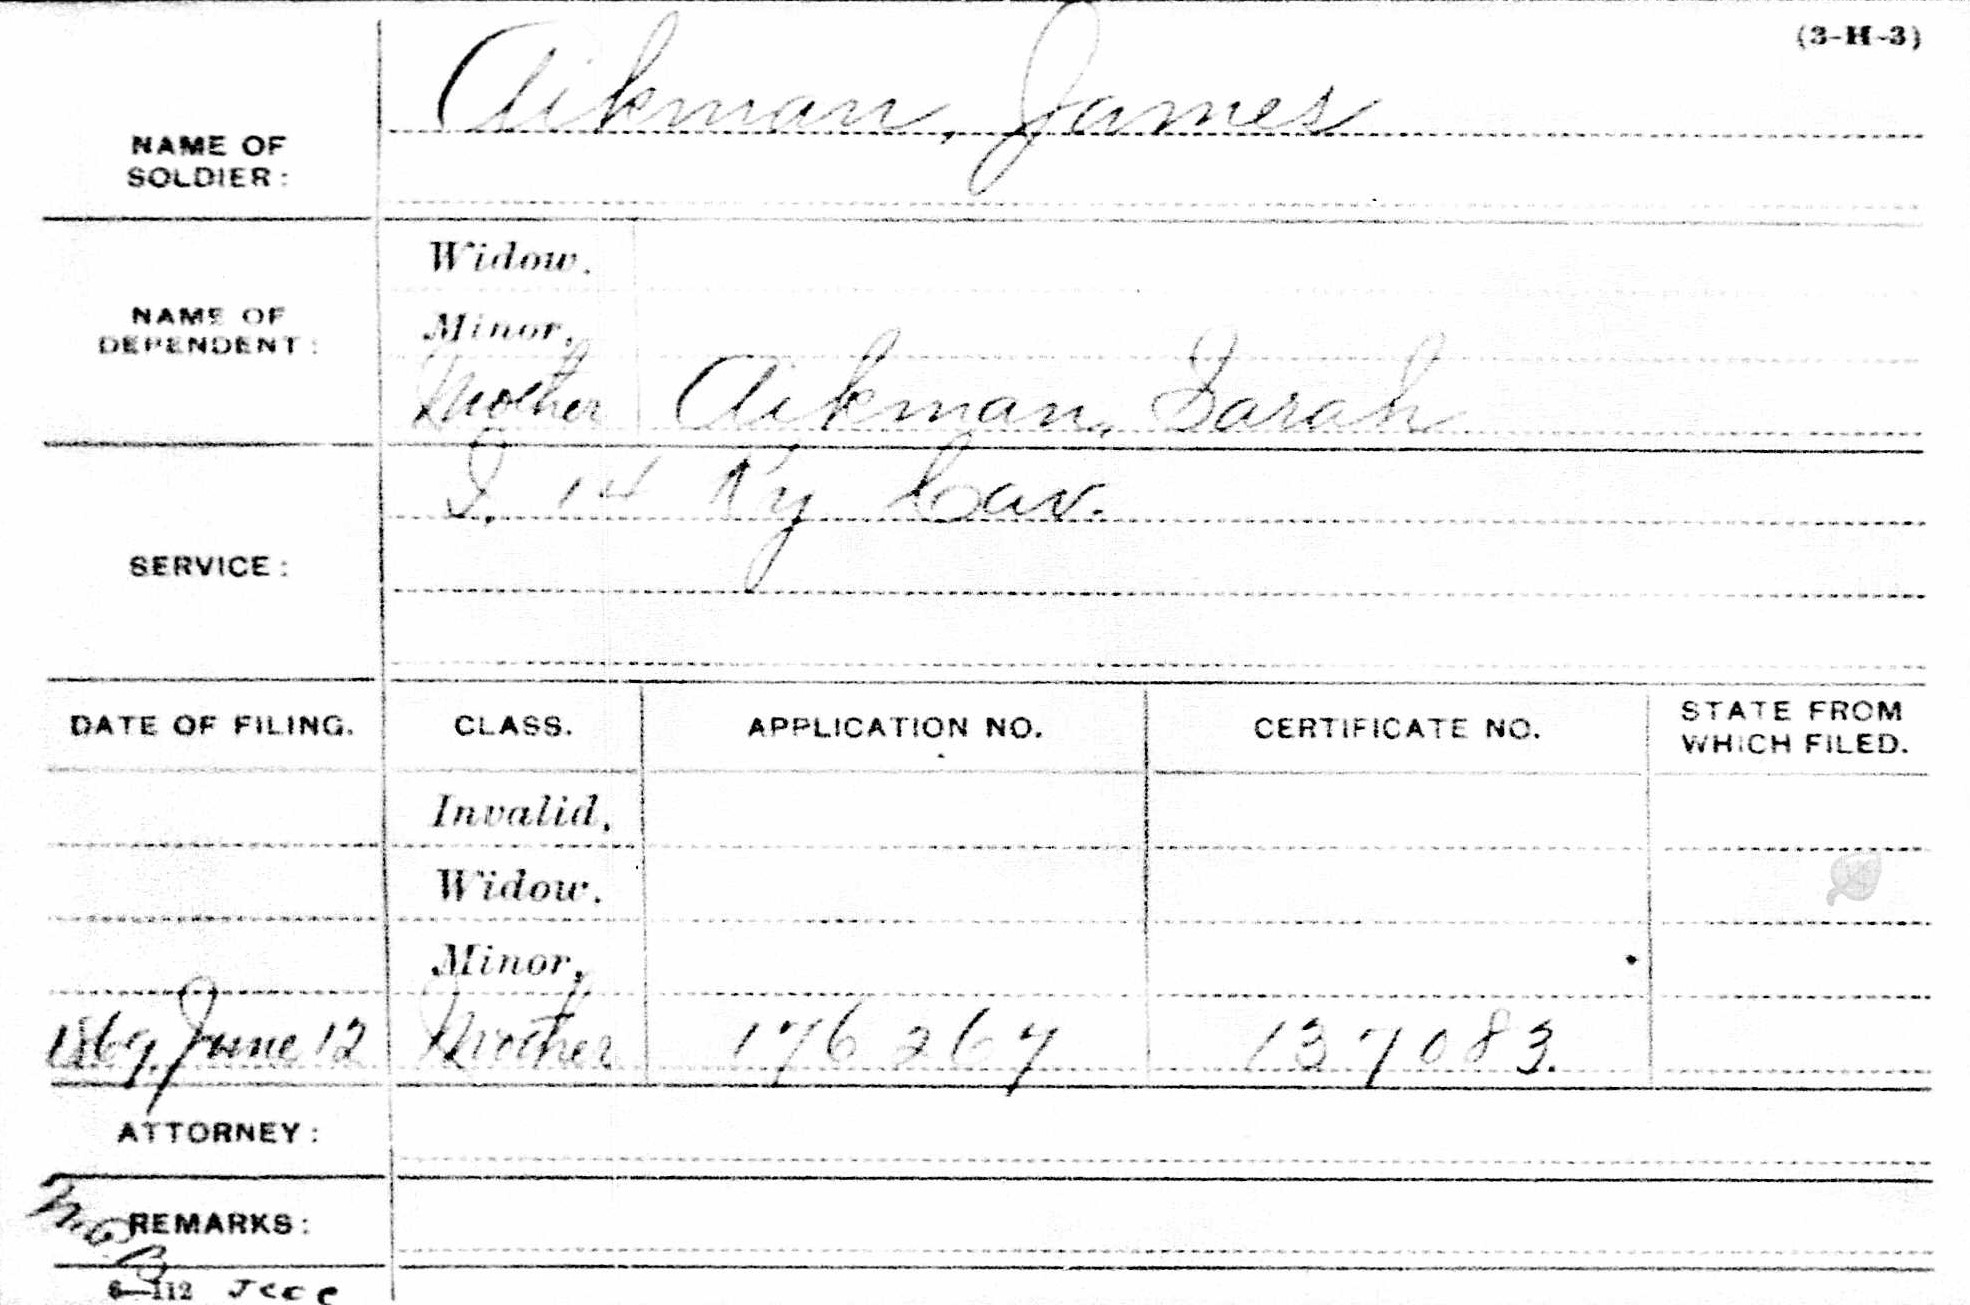 (3-H-3)
NAME OF SOLDIER: Aikman, James
NAME OF DEPENDENT:
Widow.
Minor,
Mother Aikman, Sarah
SERVICE: I, 14 Ky Cav.
DATE OF FILING. CLASS. APPLICATION NO. CERTIFICATE NO. STATE FROM WHICH FILED.
Invalid,
Widow.
Minor,
1869, June 12 Mother 176267 137083.
ATTORNEY:
REMARKS:
6—112